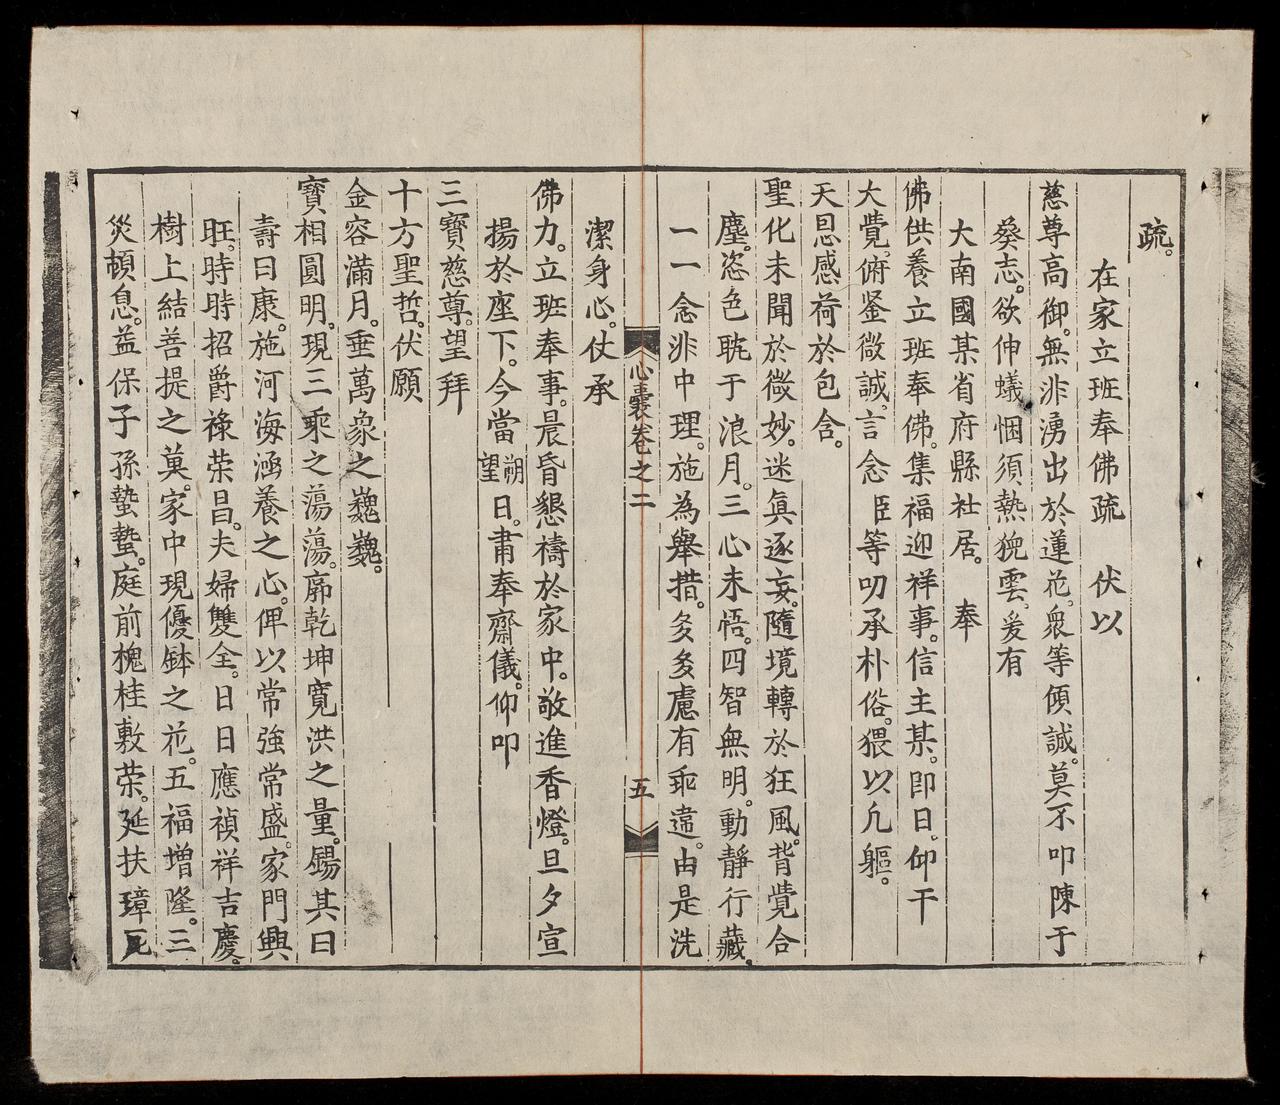 疏。
在家立班奉佛疏　伏以
慈尊高御。無非湧出於蓮花。衆等傾誠。莫不叩陳于
葵志。欲伸蟻悃須熱猊雲。爰有
大南國某省府縣社居。　奉
佛供養立班奉佛。集福迎祥事。信主某。即日。仰干
大覺。俯鉴微誠。言念臣等叨承朴俗。猥以凢軀。
天恩感荷於包含。
聖化未聞於微妙。迷真逐妄。隨境轉於狂風。背覺合
塵。恣色眈于浪月。三心未悟。四智無明。動靜行藏。
一一念非中理。施為舉措。多多慮有乖違。由是洗
心囊卷之二　五
潔身心。仗承
佛力。立班奉事。晨昏懇禱於家中。敬進香燈。旦夕宣
揚於座下。今當朔望日。肅奉齋儀。仰叩
三寶慈尊。望拜
十方聖哲。伏願
金容滿月。垂萬象之巍巍。
寶相圓明。現三乘之蕩蕩。廓乾坤寬洪之量。錫其曰
壽曰康。施河海涵養之心。俾以常強常盛。家門興
旺。時時招爵祿荣昌。夫婦雙全。日日應禎祥吉慶。
樹上結善提之菓。家中現優鉢之花。五福增隆。三
災頓息。益保子孫蟄蟄。庭前槐桂敷荣。延扶璋瓦